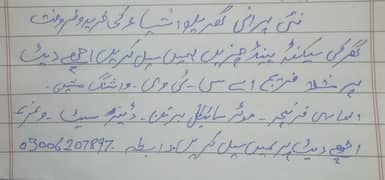 نئی پرانی گھریلو اشیاء کی خرید و فروخت
گھر کی سیکنڈ ہینڈ چیزیں ہمیں سیل کریں اچھے ریٹ
پر مثلا فریج اے سی - ٹی وی - واشنگ مشین
الماری فرنیچر - موٹر سائیکل برتن - ڈنر سیٹ - وغیرہ
اچھے ریٹ پر ہمیں سیل کریں رابطہ 03006207897